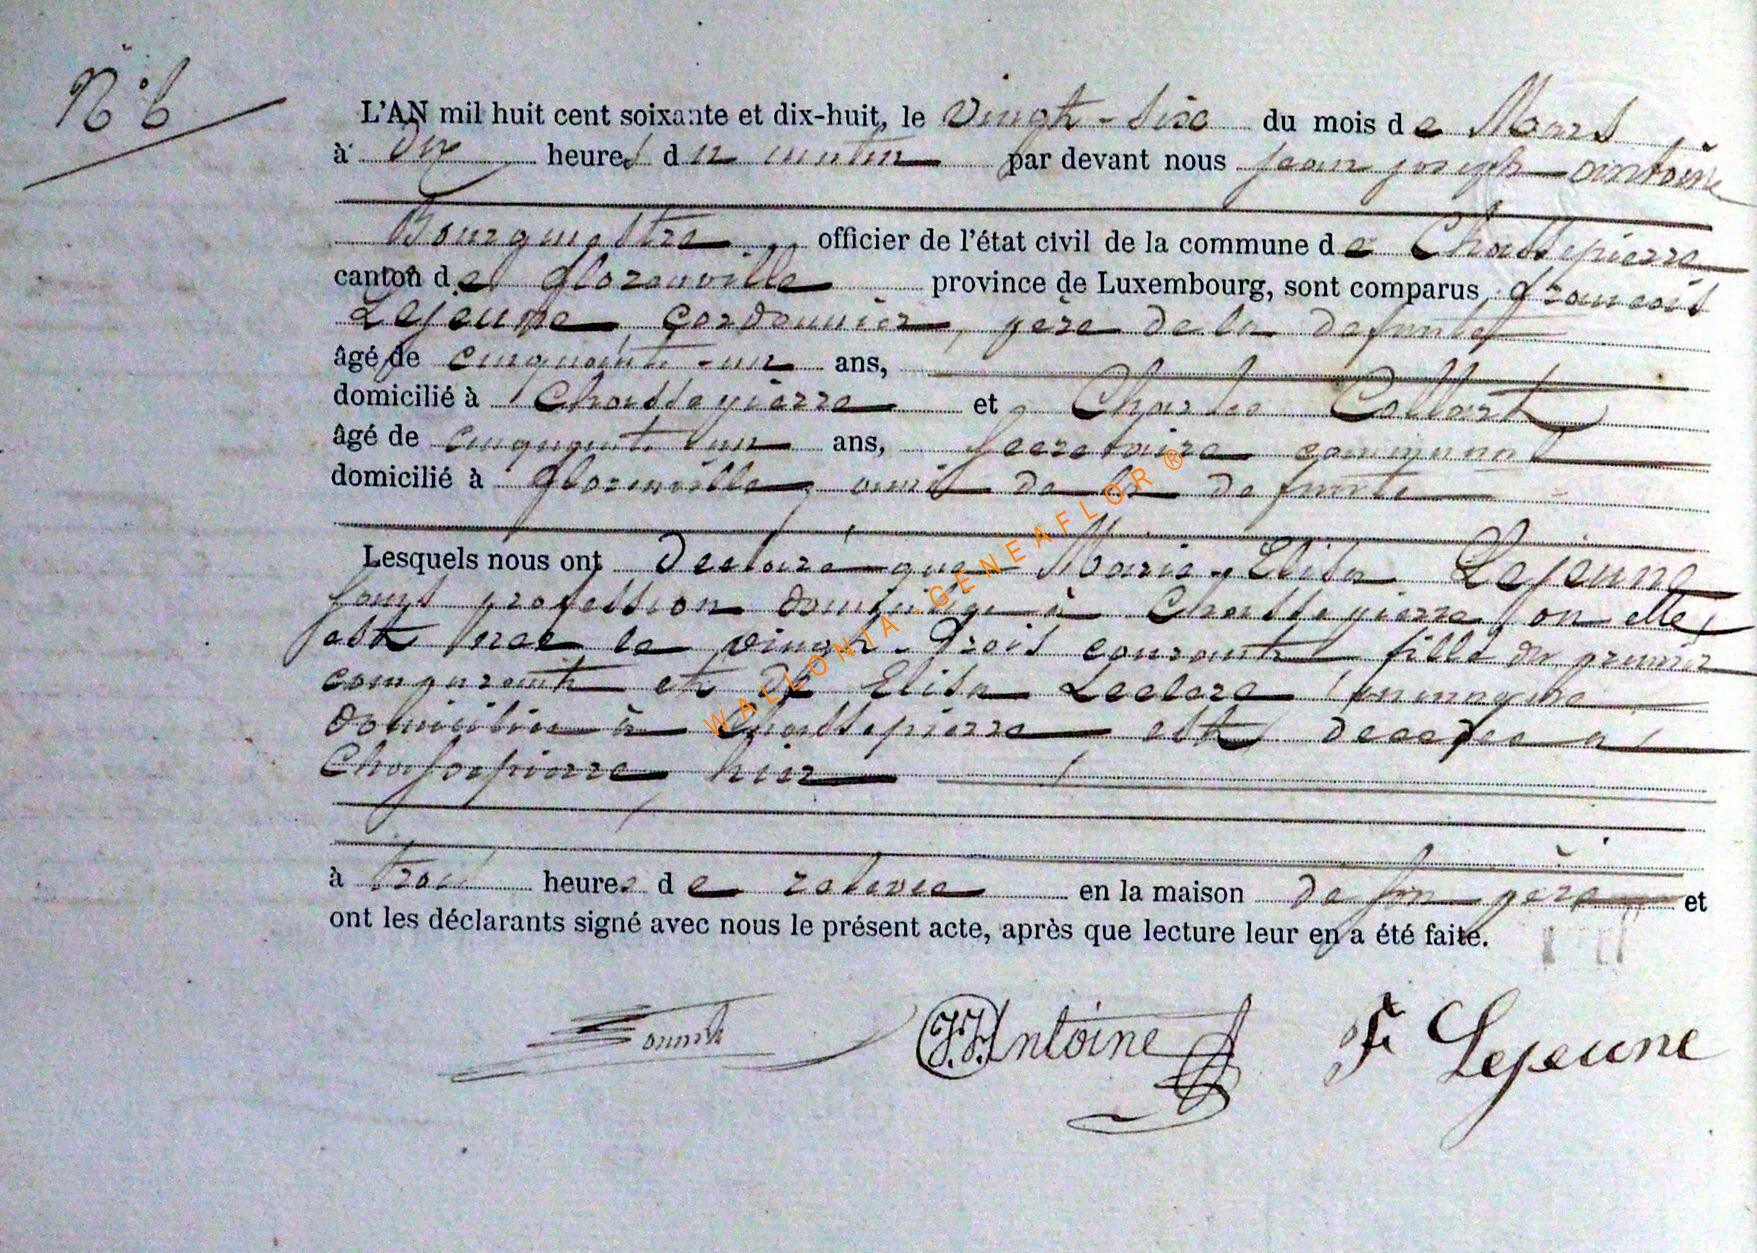 N° 6
L'AN mil huit cent soixante et dix-huit, le vingt-six du mois de Mars
à dix heures du matin par devant nous jean joseph antoine
Bourgmestre officier de l'état civil de la commune de Chassepierre
canton de florenville province de Luxembourg, sont comparus françois
Lejeune, cordonnier, père de la defunte
âgé de cinquante-un ans,
domicilié à Chassepierre et Charles Collart
âgé de cinquante un ans, Secretaire communal
domicilié à florenville, ami de la defunte
Lesquels nous ont declaré que Marie-Elisa Lejeune
sans profession domiciliée à Chassepierre ou elle
est née le vingt-trois courant fille du premier
comparant et de Elisa Leclere
domiciliée à Chassepierre est decedee a
Chassepierre hier
à trois heures de relevee en la maison de son père et
ont les déclarants signé avec nous le présent acte, après que lecture leur en a été faite.
J.J. Antoine F Lejeune
WALLONIA-GENEAFLOR ®